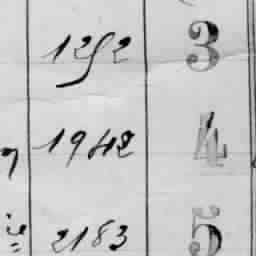 1252 3
1942 4
2183 5